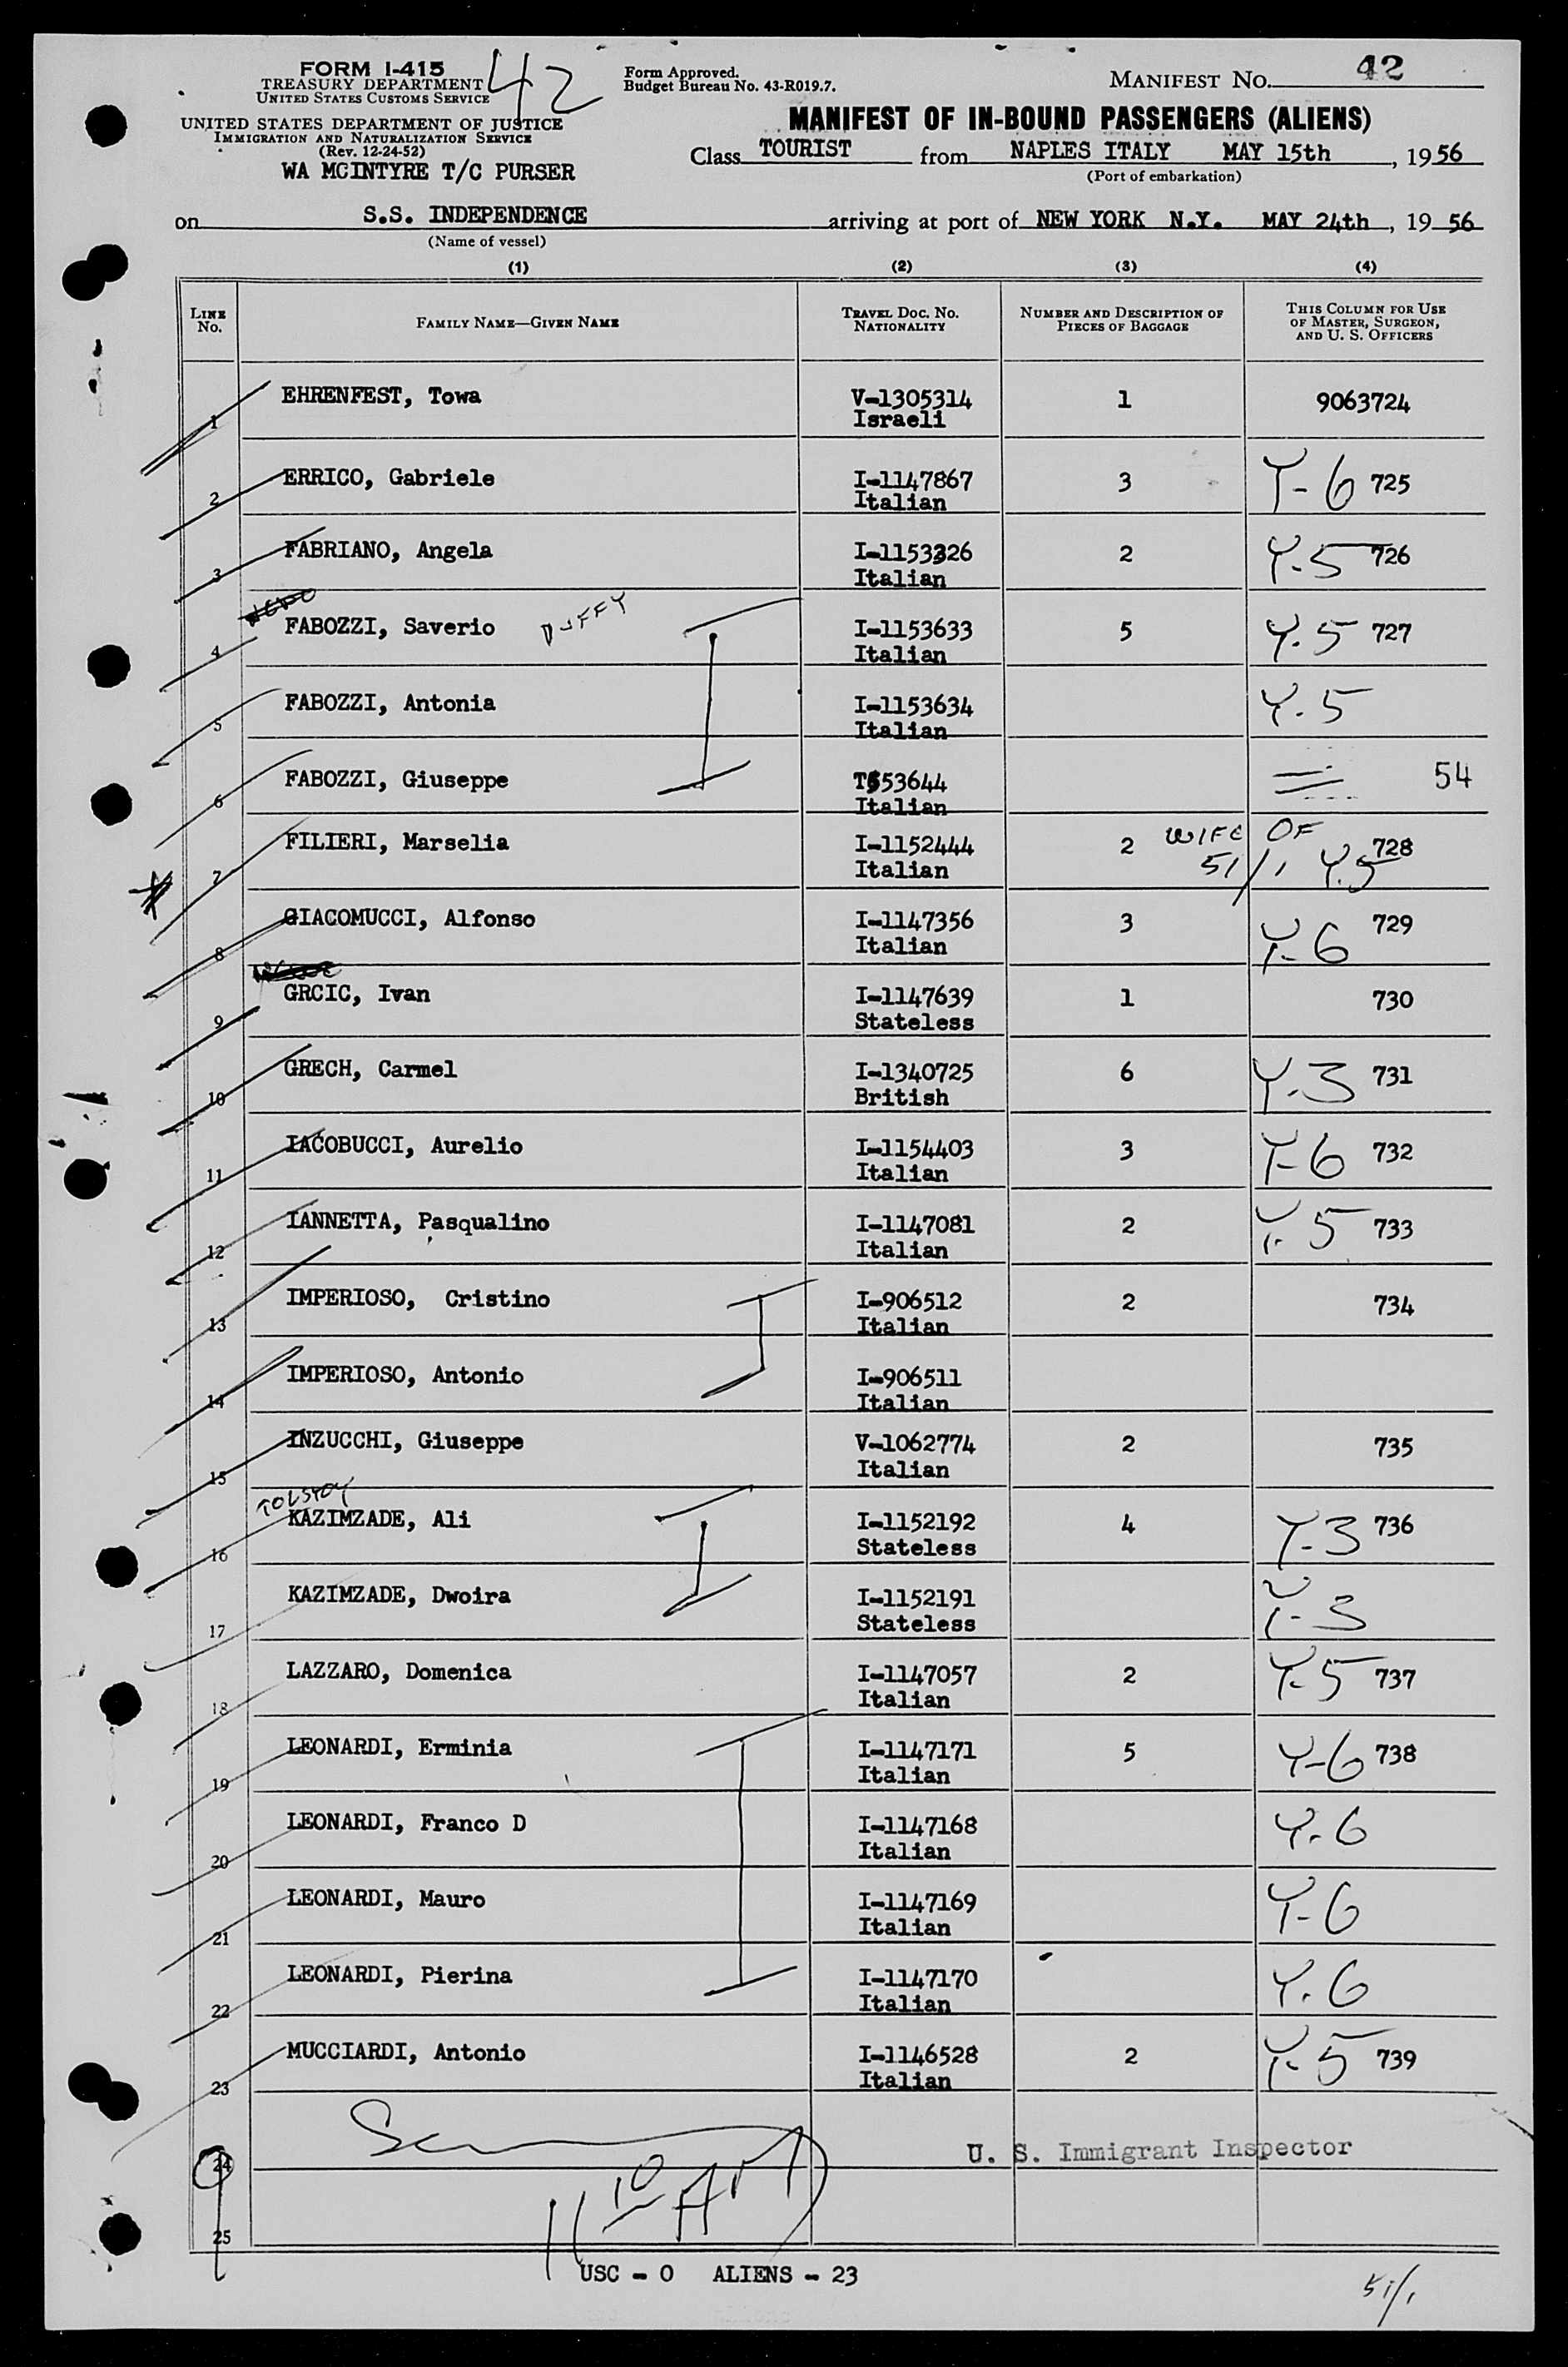 FORM I-415
TREASURY DEPARTMENT
UNITED STATES CUSTOMS SERVICE
42
Form Approved.
Budget Bureau No. 43-R019.7.
MANIFEST NO. 42
UNITED STATES DEPARTMENT OF JUSTICE
IMMIGRATION AND NATURALIZATION SERVICE
(Rev. 12-24-52)
WA MCINTYRE T/C PURSER
MANIFEST OF IN-BOUND PASSENGERS (ALIENS)
Class TOURIST from NAPLES ITALY MAY 15th, 1956
(Port of embarkation)
on S.S. INDEPENDENCE arriving at port of NEW YORK N.Y. MAY 24th, 1956
(Name of vessel)
(1) (2) (3) (4)
LINE No. FAMILY NAME—GIVEN NAME TRAVEL DOC. NO. NATIONALITY NUMBER AND DESCRIPTION OF PIECES OF BAGGAGE THIS COLUMN FOR USE OF MASTER, SURGEON, AND U. S. OFFICERS
1 EHRENFEST, Towa V-1305314 1 9063724
Israeli
2 ERRICO, Gabriele I-1147867 3 Y-6 725
Italian
3 FABRIANO, Angela I-1153326 2 Y-5 726
Italian
4 FABOZZI, Saverio DUFFY I-1153633 5 Y-5 727
Italian
5 FABOZZI, Antonia I-1153634 Y-5
Italian
6 FABOZZI, Giuseppe T553644 54
Italian
7 FILIERI, Marselia I-1152444 2 WIFE OF 51/1 Y-5 728
Italian
8 GIACOMUCCI, Alfonso I-1147356 3 Y-6 729
Italian
9 GRCIC, Ivan I-1147639 1 730
Stateless
10 GRECH, Carmel I-1340725 6 Y-3 731
British
11 IACOBUCCI, Aurelio I-1154403 3 Y-6 732
Italian
12 IANNETTA, Pasqualino I-1147081 2 Y-5 733
Italian
13 IMPERIOSO, Cristino I-906512 2 734
Italian
14 IMPERIOSO, Antonio I-906511
Italian
15 INZUCCHI, Giuseppe V-1062774 2 735
Italian
TOLSTOY
16 KAZIMZADE, Ali I-1152192 4 Y-3 736
Stateless
17 KAZIMZADE, Dwoira I-1152191 Y-3
Stateless
18 LAZZARO, Domenica I-1147057 2 Y-5 737
Italian
19 LEONARDI, Erminia I-1147171 5 Y-6 738
Italian
20 LEONARDI, Franco D I-1147168 Y-6
Italian
21 LEONARDI, Mauro I-1147169 Y-6
Italian
22 LEONARDI, Pierina I-1147170 Y-6
Italian
23 MUCCIARDI, Antonio I-1146528 2 Y-5 739
Italian
24 U. S. Immigrant Inspector
25
USC - 0 ALIENS - 23
51/1